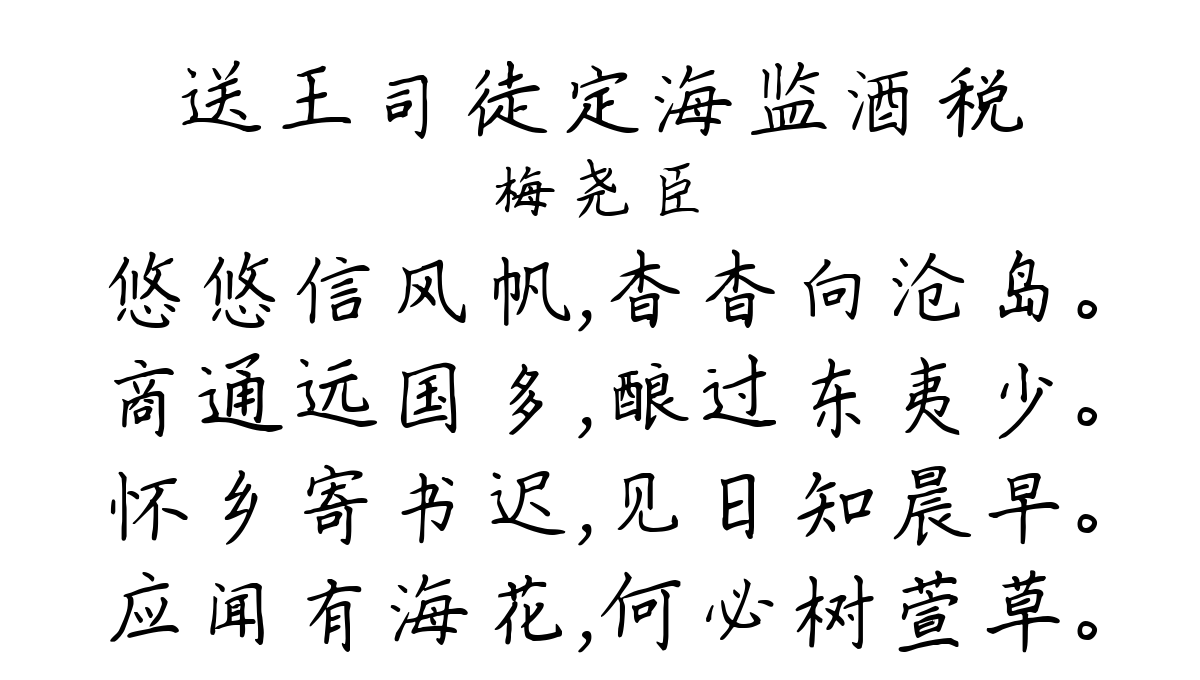 送王司徒定海监酒税
梅尧臣
悠悠信风帆,杳杳向沧岛。
商通远国多,酿过东夷少。
怀乡寄书迟,见日知晨早。
应闻有海花,何必树萱草。